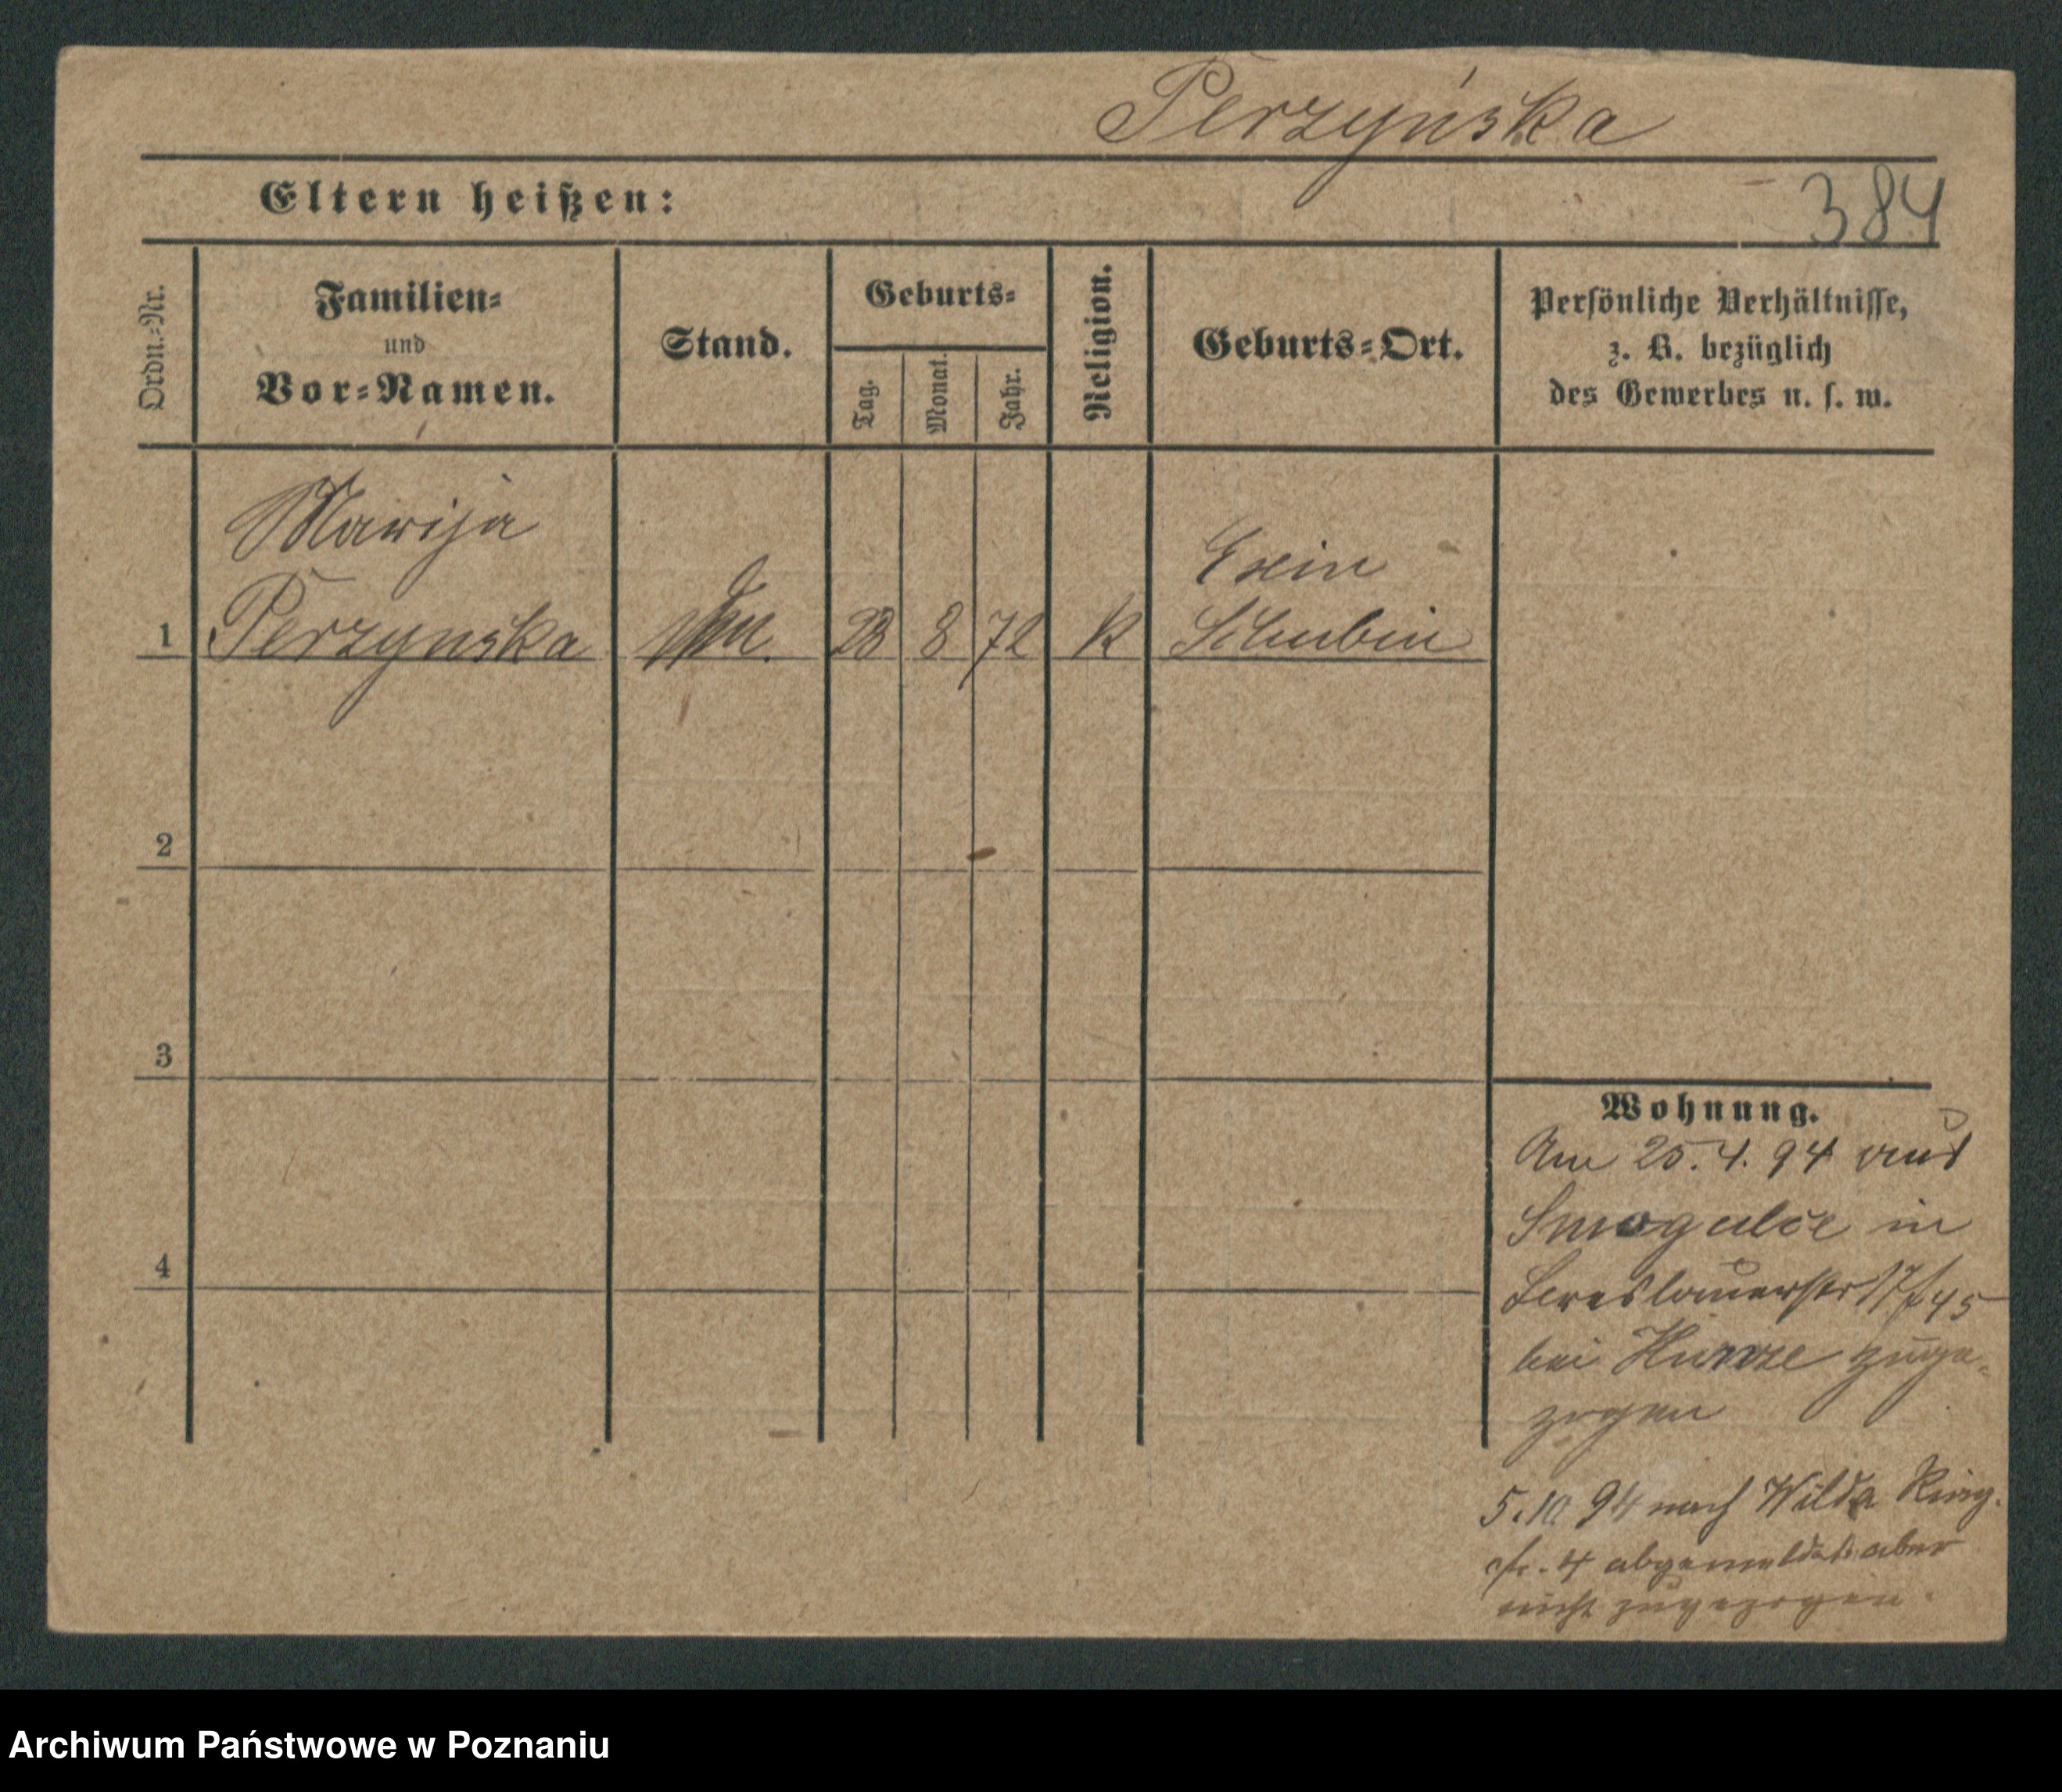 Perzyńska
Eltern heißen:
384
Ordn.=Nr.
Familien=
und
Vor=Namen.
Stand.
Geburts=
Tag.
Monat.
Jahr.
Religion.
Geburts=Ort.
Persönliche Verhältnisse,
z. B. bezüglich
des Gewerbes u. s. w.
Marija
1 Perzynska 8 72 K
Exin
Schubin
2
3
4
Wohnung.
Am 25. 4. 94 aus
Smogulec in
17/45
bei zuge-
zogen
5.10 94 nach Wilda Ring-
str. 4 abgemeldet aber
nicht zugezogen.
Archiwum Państwowe w Poznaniu